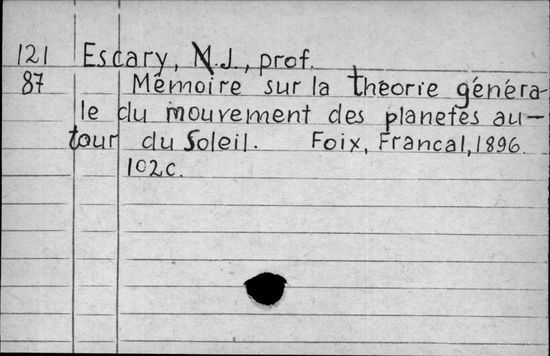 121 Escary, N.J., prof.
87 Mémoire sur la théorie généra-
le du mouvement des planetes au-
tour du Soleil. Foix, Francal, 1896.
102c.